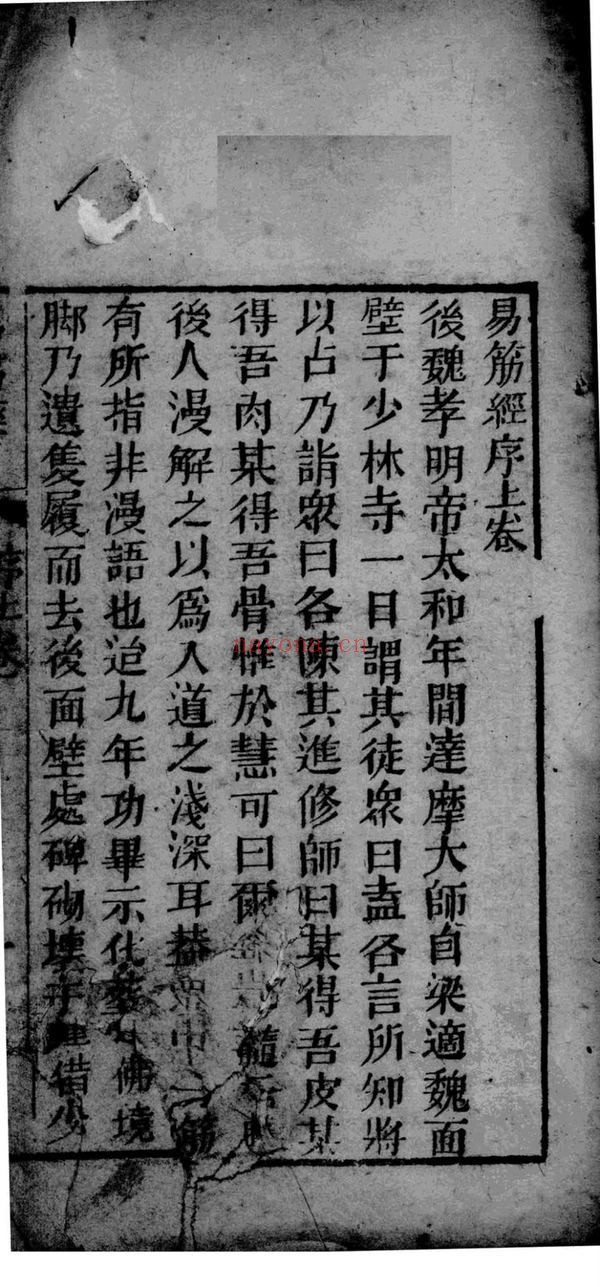 易筋經序上卷
後魏孝明帝太和年間達摩大師自梁適魏面
壁于少林寺一日謂其徒眾曰盍各言所知將
以占乃詣眾曰各陳其進修師曰某得吾皮某
得吾肉某得吾骨惟於慧可曰爾髓
後人漫解之以爲入道之淺深耳葢中筋
有所指非漫語也迨九年功畢示化佛境
脚乃遺隻履而去後面壁處碑砌壞少
nayona.cn